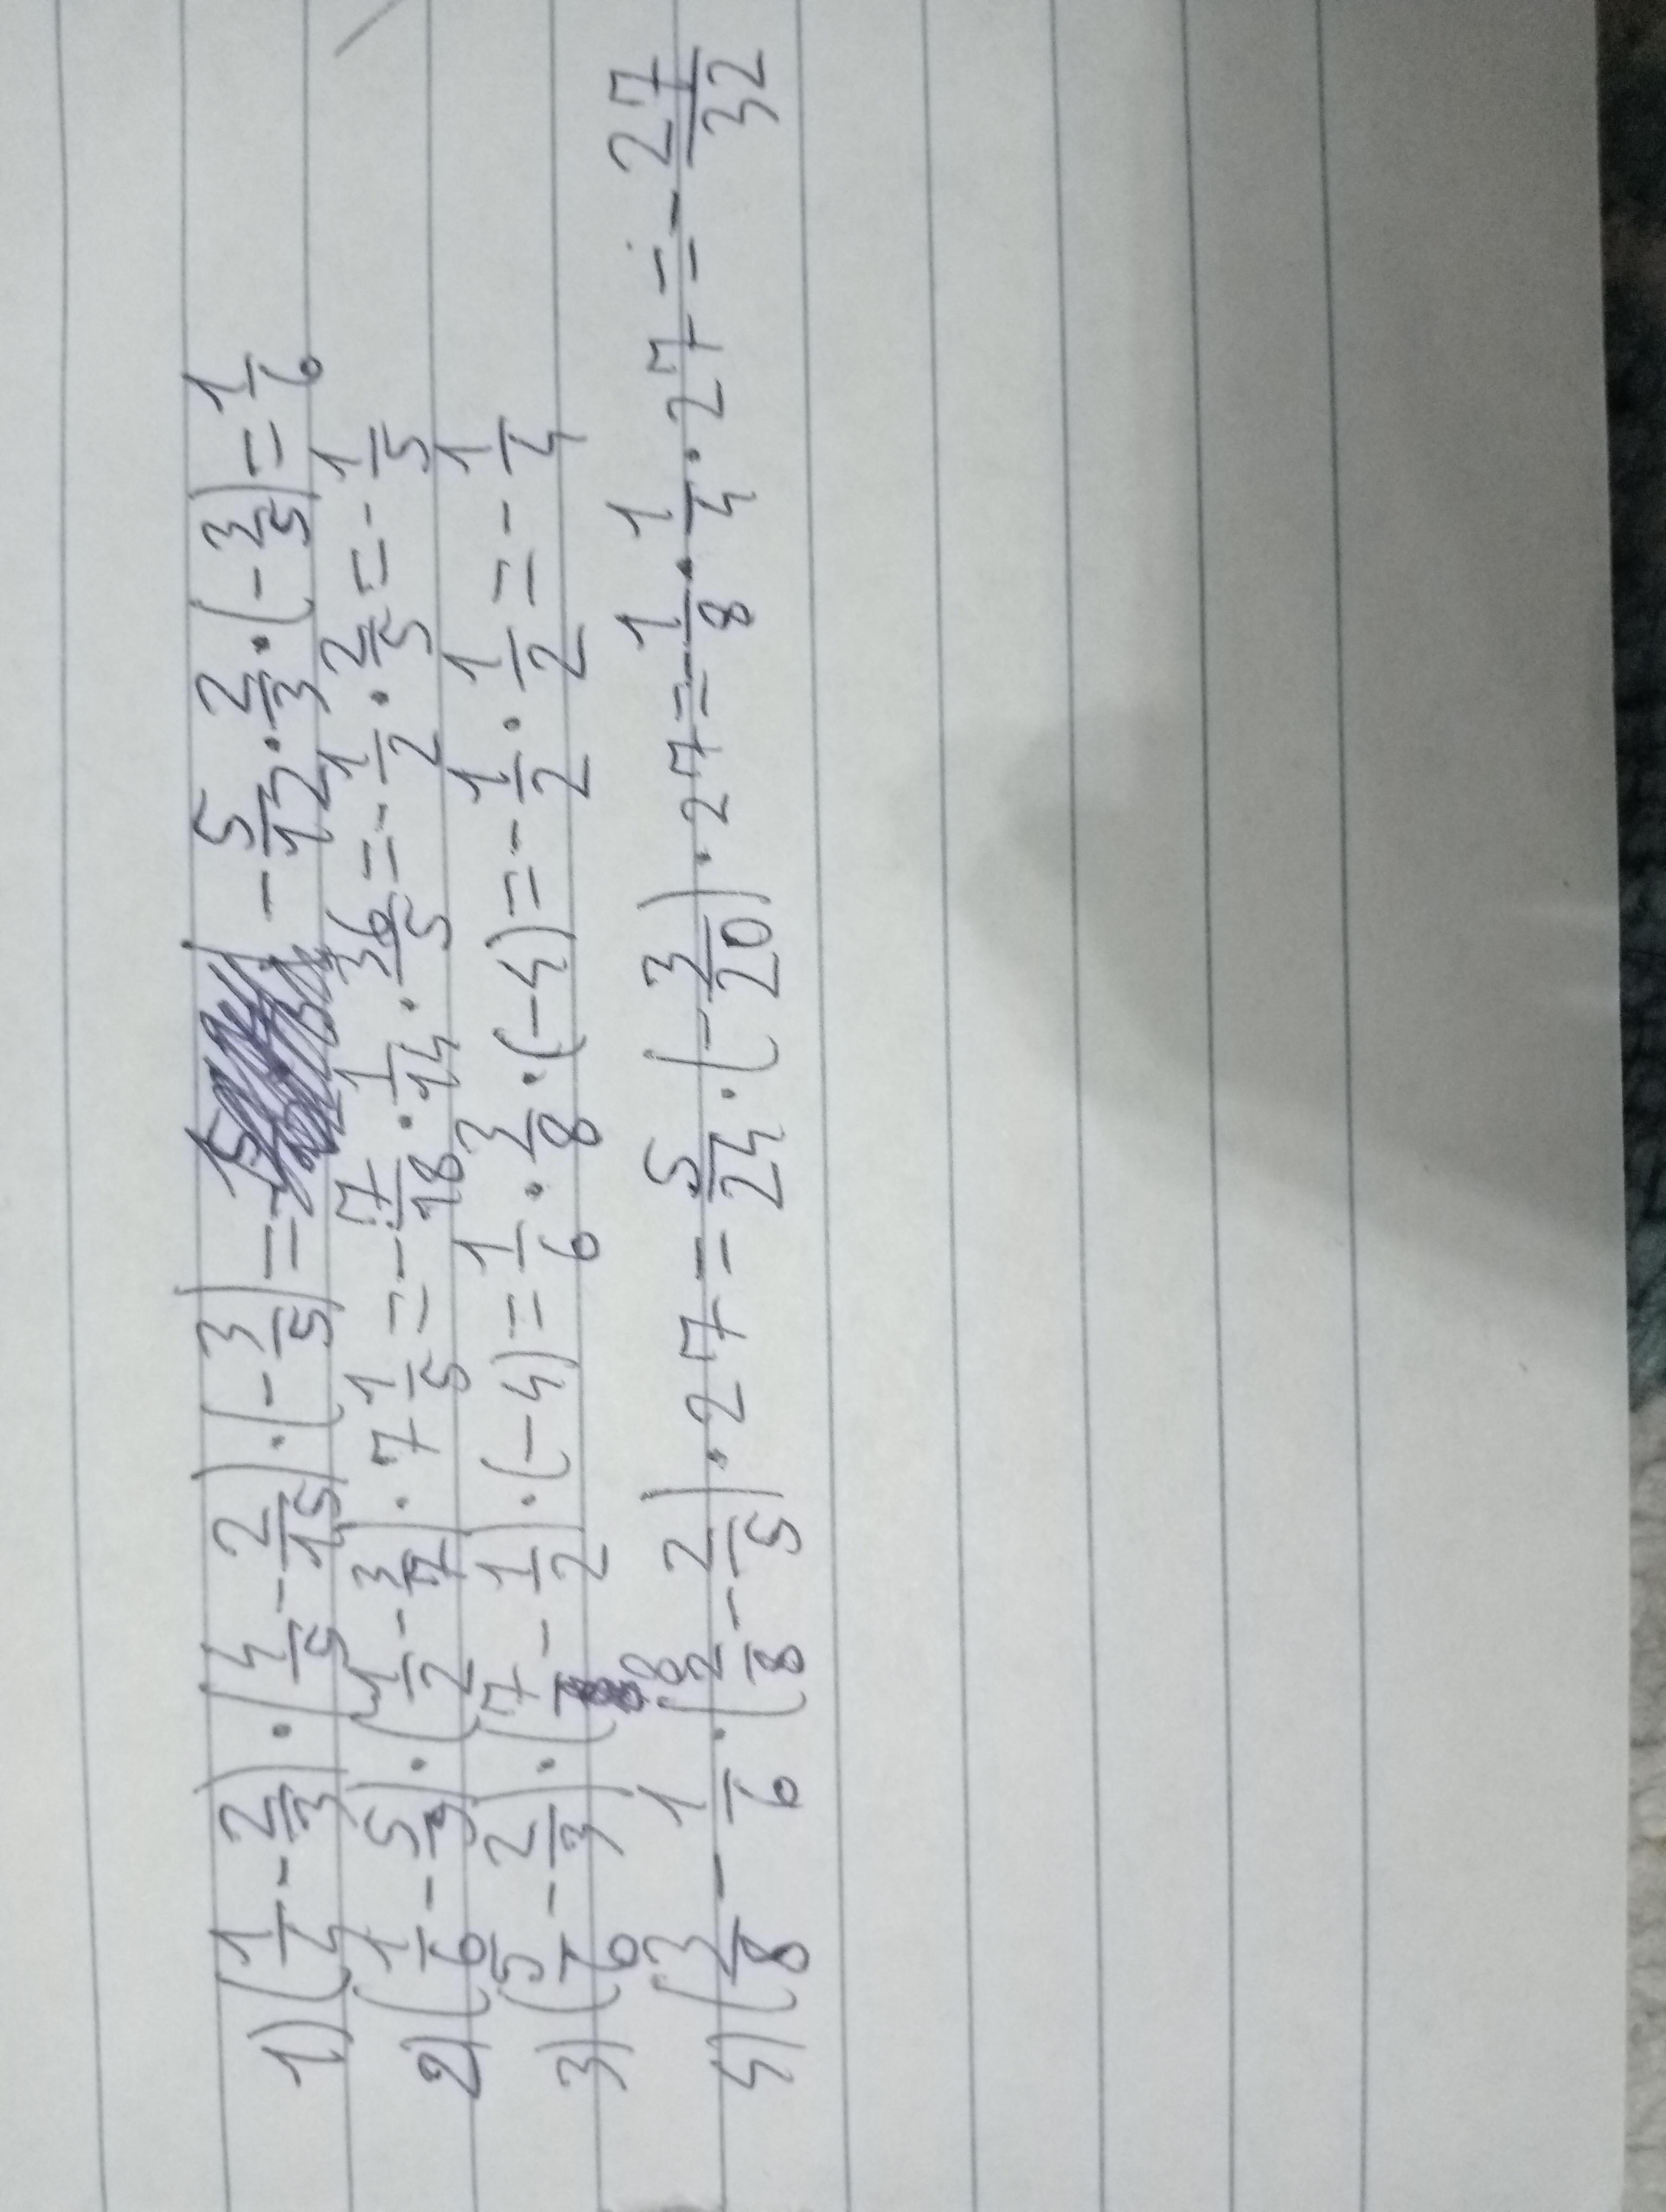 1) (1/4 - 2/3) · (4/5 - 2/15) · (-3/5) = - 5/12 · 2/3 · (-3/5) = 1/6
2) (1/6 - 5/9) · (1/2 - 3/7) · 7 1/5 = - 7/18 · 1/14 · 36/5 = - 1/2 · 2/5 = - 1/5
3) (5/6 - 2/3) · (7/8 - 1/2) · (-4) = 1/6 · 3/8 · (-4) = - 1/2 · 1/2 = - 1/4
4) (3/8 - 1/6 · (2/8 - 2/5) · 27 = 5/24 · (-3/20) · 27 = - 1/8 · 1/4 · 27 = - 27/32